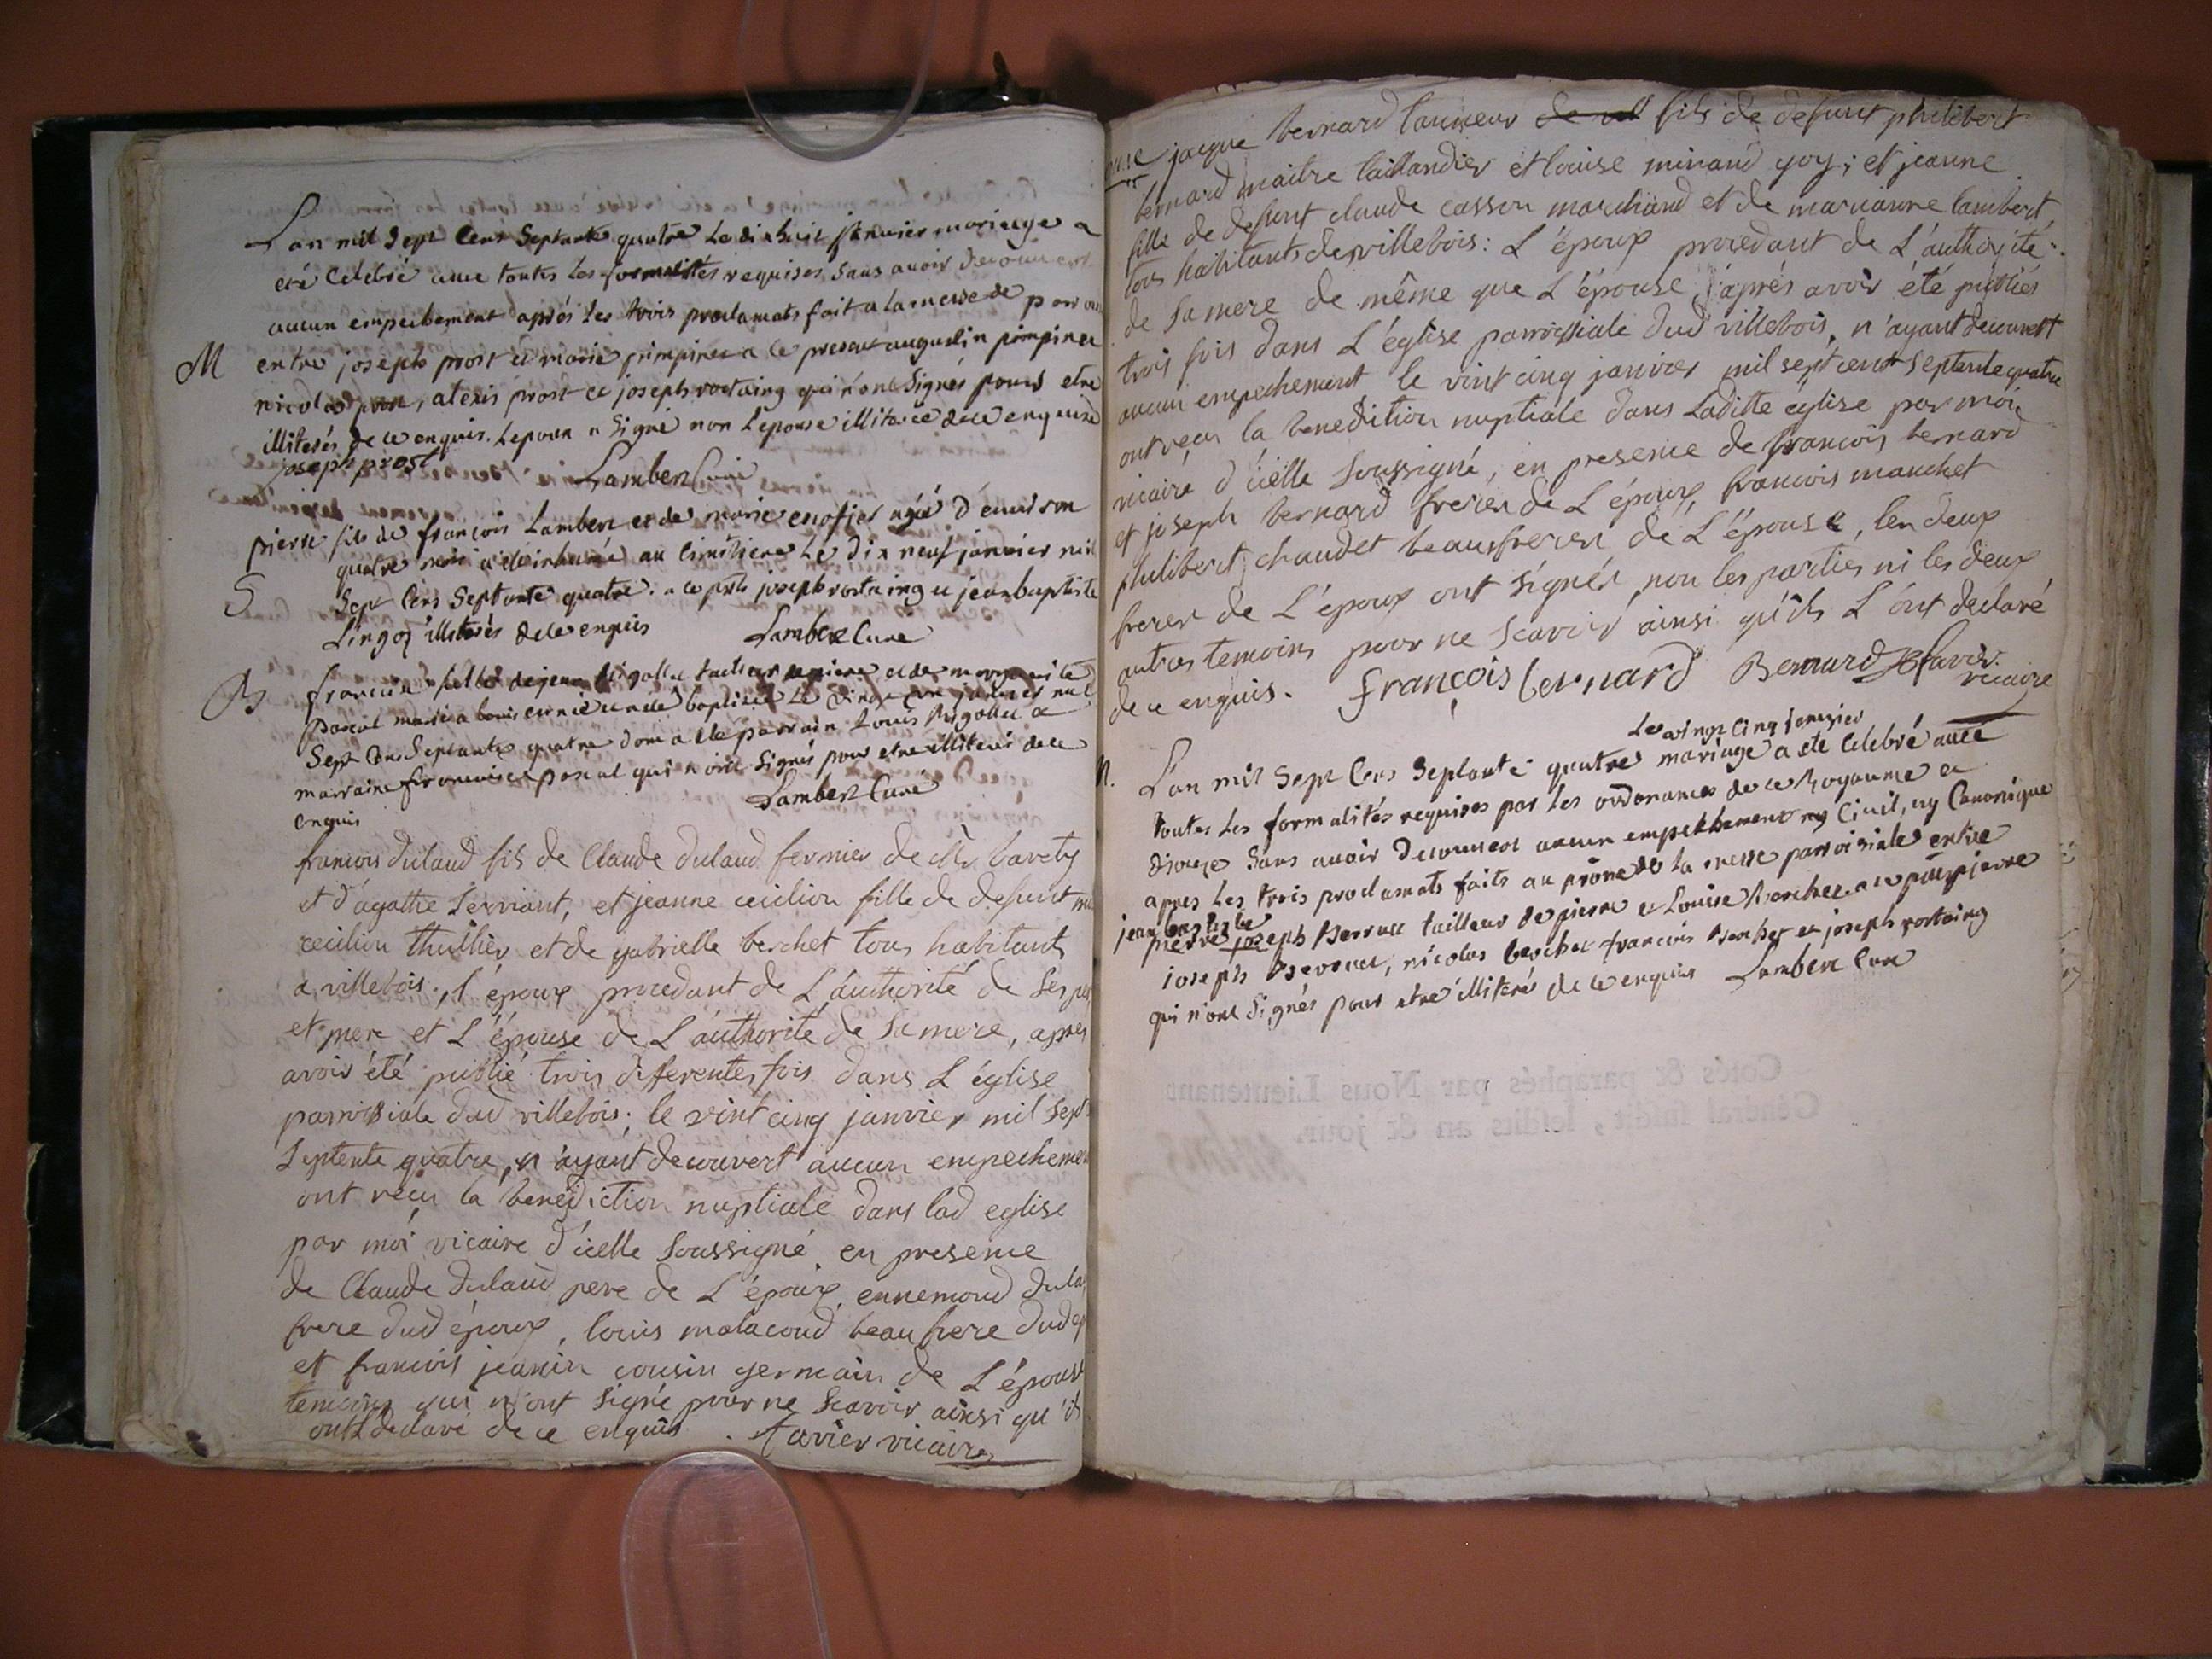 L'an mil Sept Cens Septante quatre Le dixhuit janvier mariage a
eté Celebré avec toutes Les formalités requises, Sans avoir decouvert
aucun empechement aprés Les trois proclamats fait a la messe de
M
entre joseph prost et marie pimpinet a ce present augustin pimpinet
nicolas prost, alexis prost et joseph rostaing qui n'ont Signés pour etre
illiterés de ce enquis. Lepoux a Signé non L'epouse illiterée de ce enquise
joseph prost Lambert Curé
pierre fils de françois Lambert et de marie agé d'environ
quatre mois a eté inhumé au Cimitiere Le Dix neuf janvier mil
S
Sept Cens Septante quatre. a ce pnts joseph rostaing et jean baptiste
Lingoz illiterés de ce enquis Lambert Curé
B
fille de jean rigollet tailleur de pierre et de marguerite
pascal mariés a eté baptisée Le janvier mil
Sept Cens Septante quatre dont a eté parrain Louis Rigollet et
marraine francoise pascal qui n'ont Signés pour etre illiterés de ce
enquis Lambert Curé
francois dulaud fils de Claude dulaud fermier de Mr barety
et d'agathe Servant, et jeanne cecilion fille de defunt
cecilion thuillier et de gabrielle berchet tous habitants
a villebois, l'époux procedant de L'authorité de Ses
et mere et L'épouse de L'authorité de Sa mere, apres
avoir été publié trois differentes fois dans L'église
parroissiale dud villebois, le vint cinq janvier mil Sept
Septente quatre, n'ayant decouvert aucun empechemen
ont reçu la benediction nuptiale dans lad eglise
par moi vicaire d'icelle Soussigné en presence
de Claude dulaud pere de L'époux, ennemond dula
frere dud époux, louis malacoud beau frere dud
et francois jeanin cousin germain de L'épouse
temoins qui n'ont Signé pour ne Scavoir ainsi qu'ils
ont declaré de ce enquis. favier vicaire
jacque bernard tanneur de vil fils de defunt philibert
bernard maitre taillandier et louise minand goy; et jeanne
fille de defunt claude casson marchand et de marianne lambert,
tous habitants de villebois: L'époux procedant de L'authorité
de Sa mere de même que L'épouse, aprés avoir été publiés
trois fois dans L'église parroissiale dud villebois, n'ayant decouvert
aucun empechement le vint cinq janvier mil sept cent septente quatre
ont reçu la benediction nuptiale dans Laditte eglise par moi
vicaire d'icelle Soussigné, en presence de francois bernard
et joseph bernard freres de L'époux, francois manchet
philibert chaudet beaufreres de L'épouse, les deux
freres de L'époux ont signés non les parties ni les deux
autres temoins pour ne Scavoir ainsi qu'ils L'ont declaré
de ce enquis. françois bernard Bernard favier
vicaire
Le vingt Cinq janvier
L'an mil Sept Cens Septante quatre mariage a eté Celebré avec
toutes Les formalités requises par Les ordonances de ce Royaume et
dioceze Sans avoir decouvert aucun empechement ny Civil, ny Canonique
apres Les trois proclamats faits au prône de la messe parroissiale entre
jean baptiste
pierre joseph perret tailleur de pierre et Louise berchet a ce pnts pierre
joseph perret, nicolas berchet francois berchet et joseph rostaing
qui n'ont Signés pour etre illiterés de ce enquis Lambert Curé
Cotés & paraphés par Nous Lieutenant
Général susdit, lesdits an & jour.